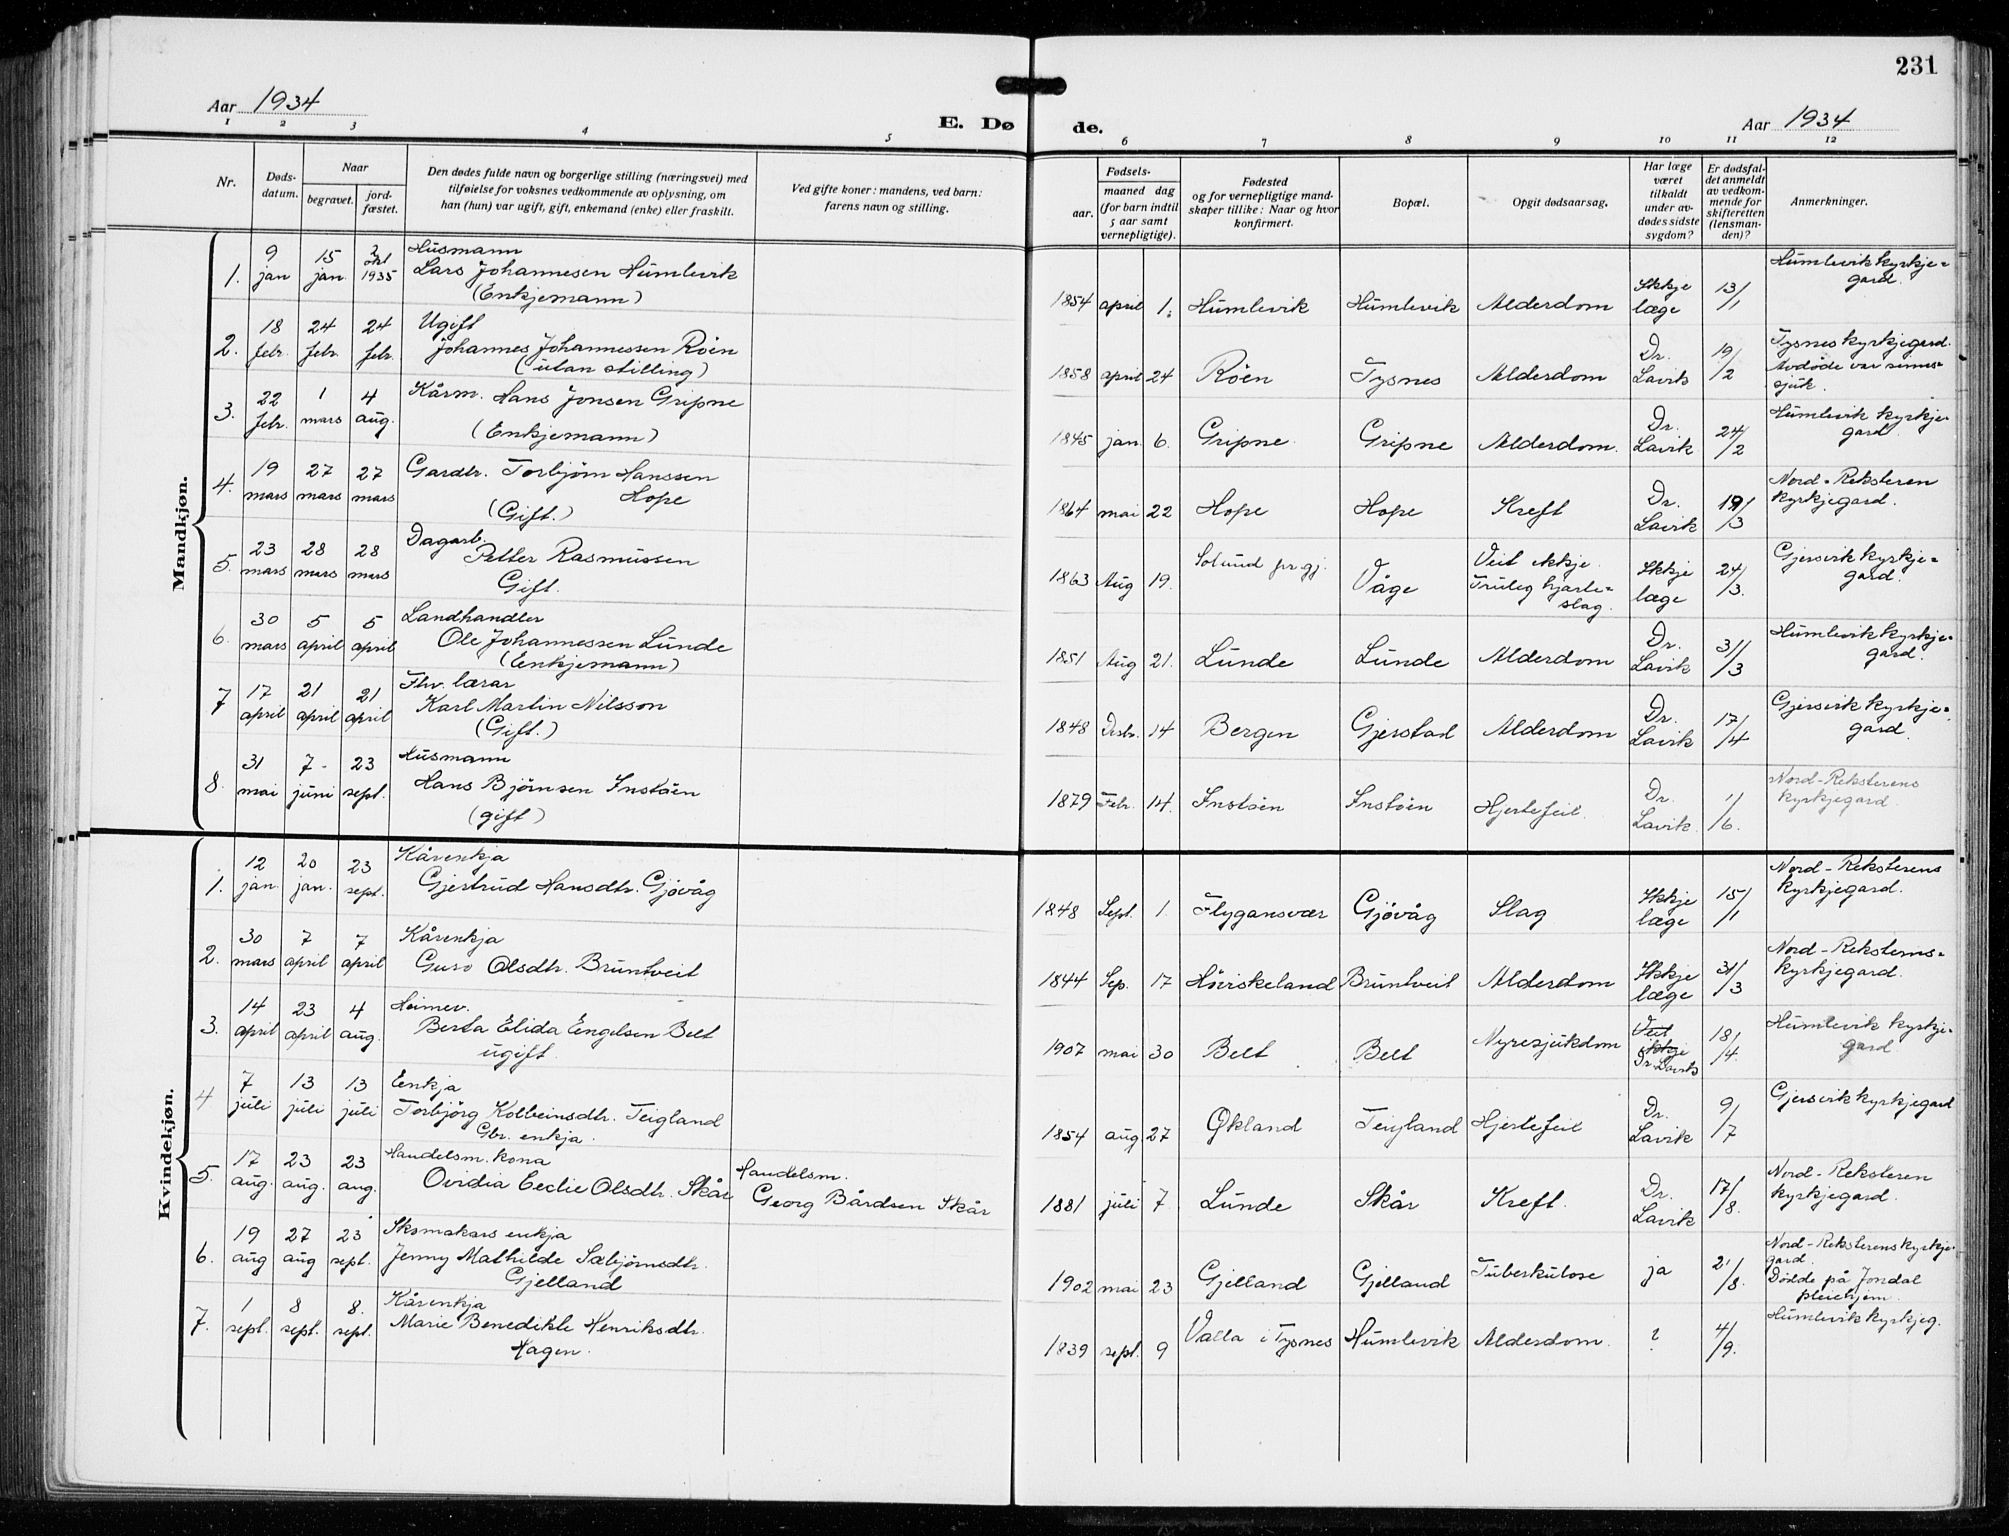 231
Aar 1934
E. Dø
de.
Aar 1934
1 2 3 4 5 6 7 8 9 10 11 12
Nr.
Døds-
datum.
Naar
begravet.
jord-
fæstet.
Den dødes fulde navn og borgerlige stilling (næringsvei) med
tilføielse for voksnes vedkommende av oplysning, om
han (hun) var ugift, gift, enkemand (enke) eller fraskilt.
Ved gifte koner: mandens, ved barn:
farens navn og stilling.
Fødsels-
aar.
maaned dag
(for barn indtil
5 aar samt
vernepligtige).
Fødested
og for vernepligtige mand-
skaper tillike: Naar og hvor
konfirmert.
Bopæl.
Opgit dødsaarsag.
Har læge
været
tilkaldt
under av-
dødes sidste
sygdom?
Er dødsfal-
det anmeldt
av vedkom-
mende for
skifteretten
(lensman-
den)?
Anmerkninger.
Mandkjøn.
1. 9 jan 15 jan. 1935
Husmann
Lars Johannesen Humlevik
(Enkjemann)
1854 april 1. Humlevik Humlevik Alderdom Ikkje læge 13/1
Humlevik kyrkje=
gard.
2. 18 febr. 24 febr. 24 febr.
Ugift
Johannes Johannessen Röen
(utan stilling)
1858 april 24 Röen Tysnes Alderdom Dr. Lavik 19/2
Tysneskyrkjegard.
Avdöde var sinns=
sjuk.
3. 22 febr. 1 mars 4 aug.
Kårm. Hans Jonsen Gripne
(Enkjemann)
1845 jan. 6. Gripne Gripne Alderdom. Dr. Lavik 24/2
Humlevik kyrkje-
gard.
4. 19 mars 27 mars 27 mars
Gardbr. Torbjørn Hanssen
Hope
(Gift.)
1864 mai 22 Hope Hope Kreft Dr. Lavik 19/3
Nord-Reksteren
kyrkjegard.
5. 23 mars 28 mars 28 mars
Dagarb.
Petter Rasmussen
Gift.
1863 Aug 19. Solund pr gj. Våge Veit ikkje. Truleg hjarte=slag. Ikkje læge 24/3.
Gjersvik kyrkje=
gard.
6. 30 mars 5 april 5 april
Landhandler
Ole Johannessen Lunde
(Eenkjemann)
1851 Aug 21. Lunde Lunde Alderdom Dr. Lavik 31/3
Humlevik kyrkje=
gard.
7 17 april 21 april 21 april
Fhv. lærar
Karl Martin Nilsson
(Gift.)
1848 Desbr. 14 Bergen Gjerstad Alderdom Dr. Lavik 17/4
Gjersvik kyrkje=
gard.
8. 31 mai 7- juni 23 sept.
Husmann
Hans Bjørnsen Instöen
(gift)
1879 Febr. 14. Instöen Instöen Hjertefeil. Dr. Lavik. 1/6.
Nord-Reksterens
kyrkjegard.
Kvindekjøn.
1. 12 jan. 20 jan. 23 sept.
Kårenkja
Gjertrud Hansdtr. Gjövåg
1848 Sept. 1. Flygansvær Gjövåg Slag Ikkje læge 15/1
Nord-Reksterens
kyrkjegard.
2. 30 mars 7 april 7 april
Kårenkja
Guro Olsdtr. Bruntveit
1844 Sep. 17 Höviskeland Bruntveit Alderdom Ikkje læge 31/3
Nord-Reksterns=
kyrkjegard.
3. 14 april 23 april 4 aug.
Heimev.
Berta Elida Engelsen Belt
ugift.
1907 mai 30 Belt Belt Nyresjukdom Veit ikkje Dr. Lavik 18/4.
Humlevik kyrkje-
gard
4 7 juli 13 juli 13 juli
Eenkja
Torbjörg Kolbeinsdtr. Teigland
Gbr. enkja.
1854 aug 27 Økland Teigland Hjertefeil Dr. Lavik 9/7
Gjersvik kyrkjegard
5. 17 aug. 23 aug. 23 aug.
Handelsm. kona
Ovidia Cecilie Olsdtr. Skår
Handelsm.
Georg Bårdsen Skår
1881 juli 7 Lunde Skår Kreft. Dr. Lavik 17/8.
Nord-Reksteren
kyrkjegard.
6. 19 aug 27 aug 23 sept.
Skomakars enkja
Jenny Mathilde Sæbjörnsdtr.
Gjelland
1902 mai 23 Gjelland Gjelland Tuberkulose ja 21/8.
Nord-Reksterens kyrkje-
gard.
Dödde på Jondal
pleiehjem.
7. 1 sept. 8 sept. 8. sept.
Kårenkja
Marie Benedikte Henriksdtr.
Hagen.
1839 sept. 9 Valla i Tysnes Humlevik Alderdom. ? 4/9.
Humlevik kyrkjeg.